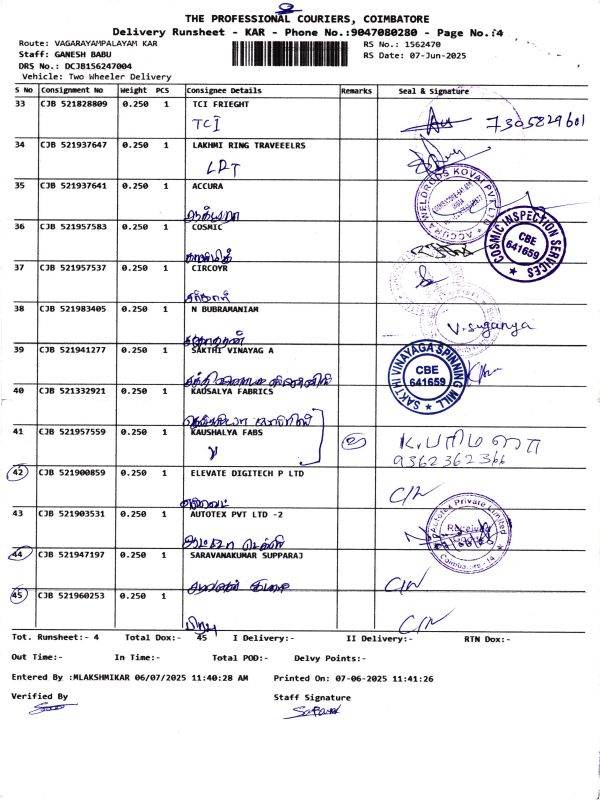 THE PROFESSIONAL COURIERS, COIMBATORE
Delivery Runsheet - KAR - Phone No.:9047080280 - Page No.:4
Route: VAGARAYAMPALAYAM KAR RS No.: 1562470
Staff: GANESH BABU RS Date: 07-Jun-2025
DRS No.: DCJB156247004
Vehicle: Two Wheeler Delivery
S No Consignment No Weight PCS Consignee Details Remarks Seal & Signature
33 CJB 521828809 0.250 1 TCI FRIEGHT
TCI 7305829601
34 CJB 521937647 0.250 1 LAKHMI RING TRAVEEELRS
LRT
35 CJB 521937641 0.250 1 ACCURA
ACCURA WELDRODS KOVAI PVT LTD
36 CJB 521957583 0.250 1 COSMIC
COSMIC INSPECTION SERVICES
CBE
641659
37 CJB 521957537 0.250 1 CIRCOYR
38 CJB 521983405 0.250 1 N BUBRAMANIAM
V. Suganya
39 CJB 521941277 0.250 1 SAKTHI VINAYAG A
SAKTHI VINAYAGA SPINNING MILL
CBE
641659
40 CJB 521332921 0.250 1 KAUSALYA FABRICS
41 CJB 521957559 0.250 1 KAUSHALYA FABS
② K. பரிமளா
9362362366
42 CJB 521900859 0.250 1 ELEVATE DIGITECH P LTD
C/N
43 CJB 521903531 0.250 1 AUTOTEX PVT LTD -2
Autotex Private Limited
Received
Coimbatore - 14
44 CJB 521947197 0.250 1 SARAVANAKUMAR SUPPARAJ
C/N
45 CJB 521960253 0.250 1
C/N
Tot. Runsheet:- 4 Total Dox:- 45 I Delivery:- II Delivery:- RTN Dox:-
Out Time:- In Time:- Total POD:- Delvy Points:-
Entered By :MLAKSHMIKAR 06/07/2025 11:40:28 AM Printed On: 07-06-2025 11:41:26
Verified By Staff Signature